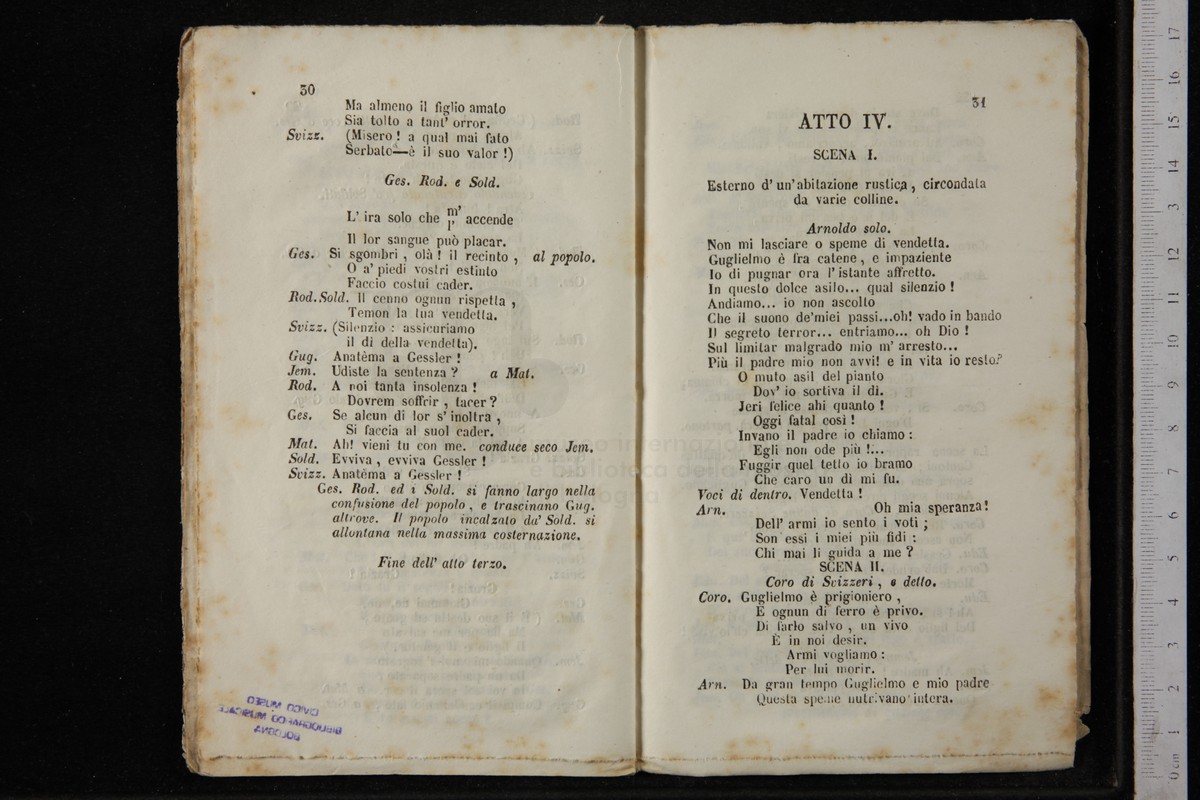 30
Ma almeno il figlio amato
Sia tolto a tant' orror.
Svizz. (Misero ! a qual mai fato
Serbato—è il suo valor !)
Ges. Rod. e Sold.
L' ira solo che m' / l' accende
Il lor sangue può placar.
Ges. Si sgombri , olà ! il recinto , al popolo.
O a' piedi vostri estinto
Faccio costui cader.
Rod.Sold. Il cenno ognun rispetta ,
Temon la tua vendetta.
Svizz. (Silenzio : assicuriamo
il di della vendetta).
Gug. Anatèma a Gessler !
Jem. Udiste la sentenza ? a Mat.
Rod. A noi tanta insolenza !
Dovrem soffrir , tacer ?
Ges. Se alcun di lor s' inoltra ,
Si faccia al suol cader.
Mat. Ah! vieni tu con me. conduce seco Jem.
Sold. Evviva , evviva Gessler !
Svizz. Anatèma a Gessler !
Ges. Rod. ed i Sold. si fanno largo nella
confusione del popolo , e trascinano Gug.
altrove. Il popolo incalzato da' Sold. si
allontana nella massima costernazione.
Fine dell' atto terzo.
CIVICO MUSEO
BIBLIOGRAFICO MUSICALE
BOLOGNA
31
ATTO IV.
SCENA I.
Esterno d' un' abitazione rustica , circondata
da varie colline.
Arnoldo solo.
Non mi lasciare o speme di vendetta.
Guglielmo è fra catene , e impaziente
Io di pugnar ora l' istante affretto.
In questo dolce asilo... qual silenzio !
Andiamo... io non ascolto
Che il suono de'miei passi...oh! vado in bando
Il segreto terror... entriamo... oh Dio !
Sul limitar malgrado mio m' arresto...
Più il padre mio non avvi! e in vita io resto?
O muto asil del pianto
Dov' io sortiva il dì.
Jeri felice ahi quanto !
Oggi fatal così !
Invano il padre io chiamo :
Egli non ode più !...
Fuggir quel tetto io bramo
Che caro un dì mi fu.
Voci di dentro. Vendetta !
Arn. Oh mia speranza!
Dell' armi io sento i voti ;
Son essi i miei più fidi :
Chi mai li guida a me ?
SCENA II.
Coro di Svizzeri , e detto.
Coro. Guglielmo è prigioniero ,
E ognun di ferro è privo.
Di farlo salvo , un vivo
È in noi desir.
Armi vogliamo :
Per lui morir.
Arn. Da gran tempo Guglielmo e mio padre
Questa speme nutrivano intera.